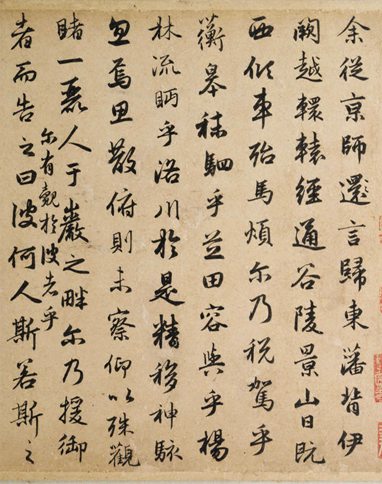 余從京師還言歸東藩背伊
闕越轘轅經通谷陵景山日既
西傾車殆馬煩尔乃稅駕乎
衡皋秣駟乎芝田容與乎楊
林流眄乎洛川於是精移神駭
忽焉思散俯則未察仰以殊觀
睹一麗人于巖之畔尔乃援御
尔有覿於彼者乎
者而告之曰彼何人斯若斯之